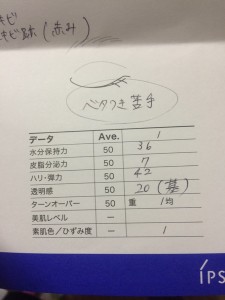 キビ
キビ跡(赤み)
ベタつき苦手
データ Ave. 1
水分保持力 50 36
皮脂分泌力 50 7
ハリ・弾力 50 42
透明感 50 20(基)
ターンオーバー 50 重 1均
美肌レベル —
素肌色/ひずみ度 — 1
IPS